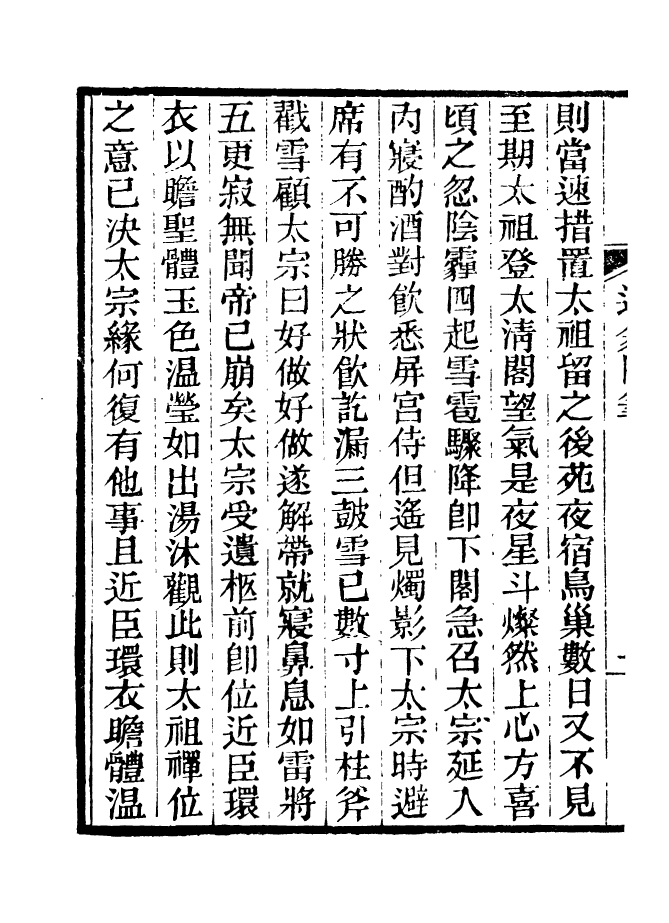 則當速措置太祖留之後苑夜宿鳥巢數日又不見
至期太祖登太淸閣望氣是夜星斗燦然上心方喜
頃之忽陰霾四起雪雹驟降卽下閣急召太宗延入
內寢酌酒對飮悉屏宮侍但遙見燭影下太宗時避
席有不可勝之狀飮訖漏三鼓雪已數寸上引柱斧
戳雪顧太宗曰好做好做遂解帶就寢鼻息如雷將
五更寂無聞帝已崩矣太宗受遺柩前卽位近臣環
衣以瞻聖體玉色温瑩如出湯沐觀此則太祖禪位
之意已決太宗緣何復有他事且近臣環衣瞻體温